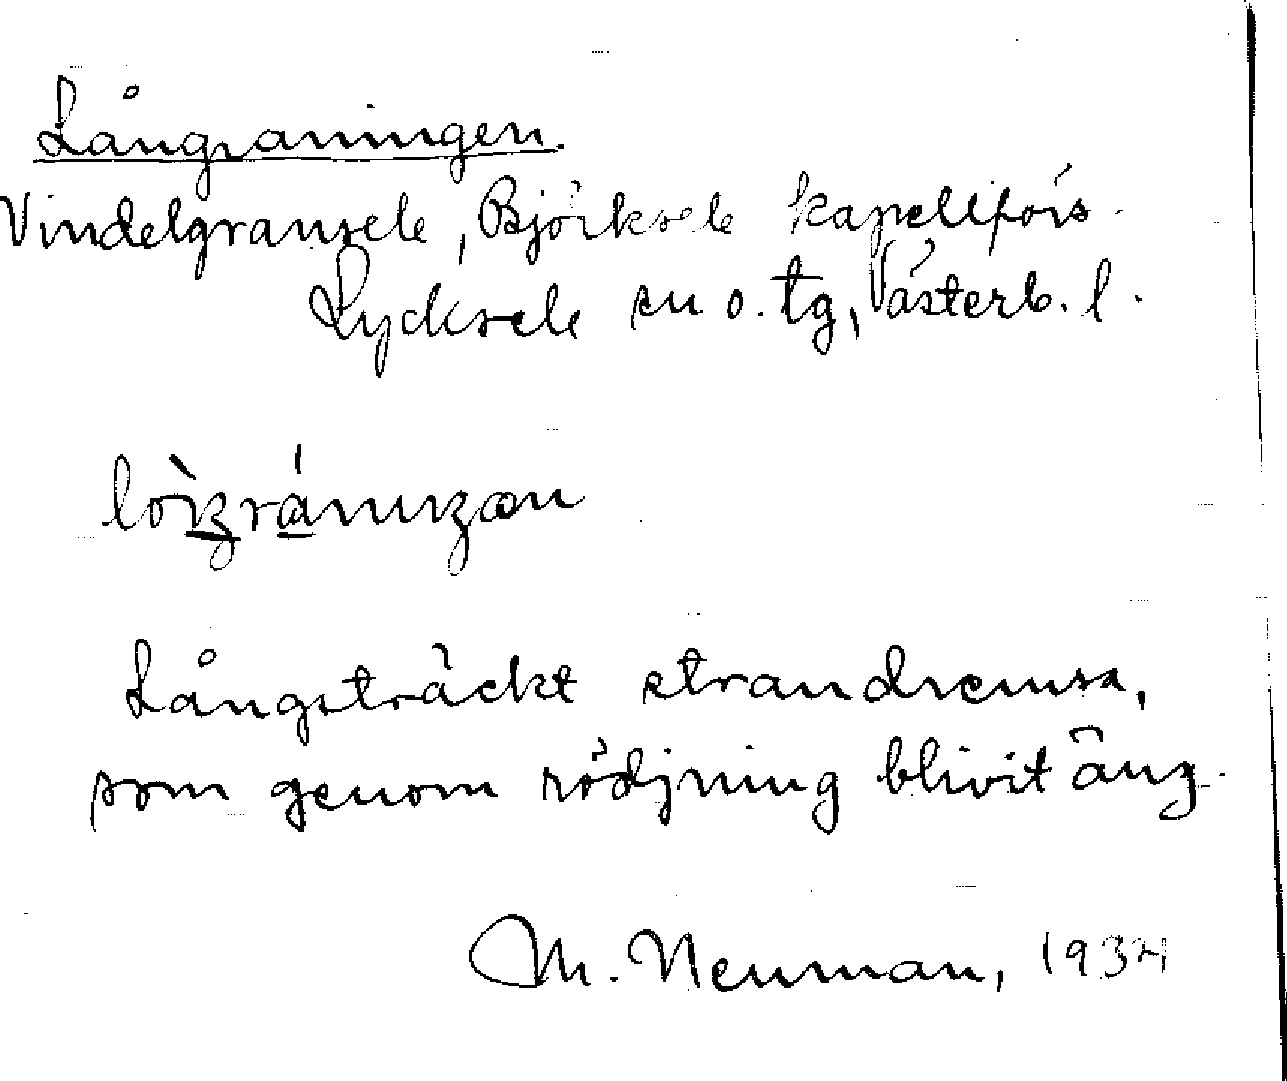 Långraningen.
Vindelgransele, Björksele kapellförs.
Lycksele sn o. tg, Västerb. l.
Långsträckt strandremsa,
som genom rödjning blivit äng.
M. Neuman, 1934